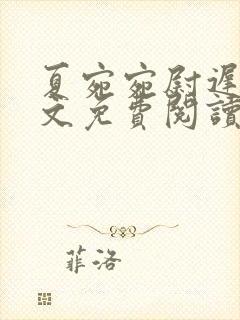 夏宛宛尉遲
文免費閱讀
菲洛